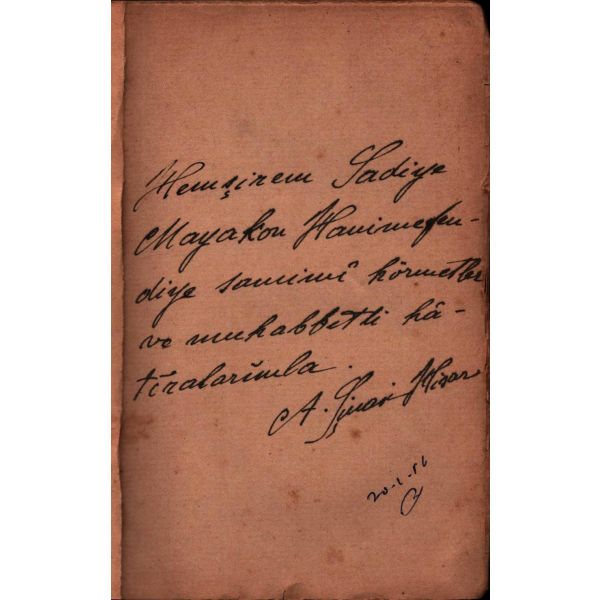 Hemşirem Sadiye
Mayakon Hanımefen-
diye samimî hörmetler
ve muhabbetli hâ-
tıralarımla.
A. Şinasi Hisar
20-1-56